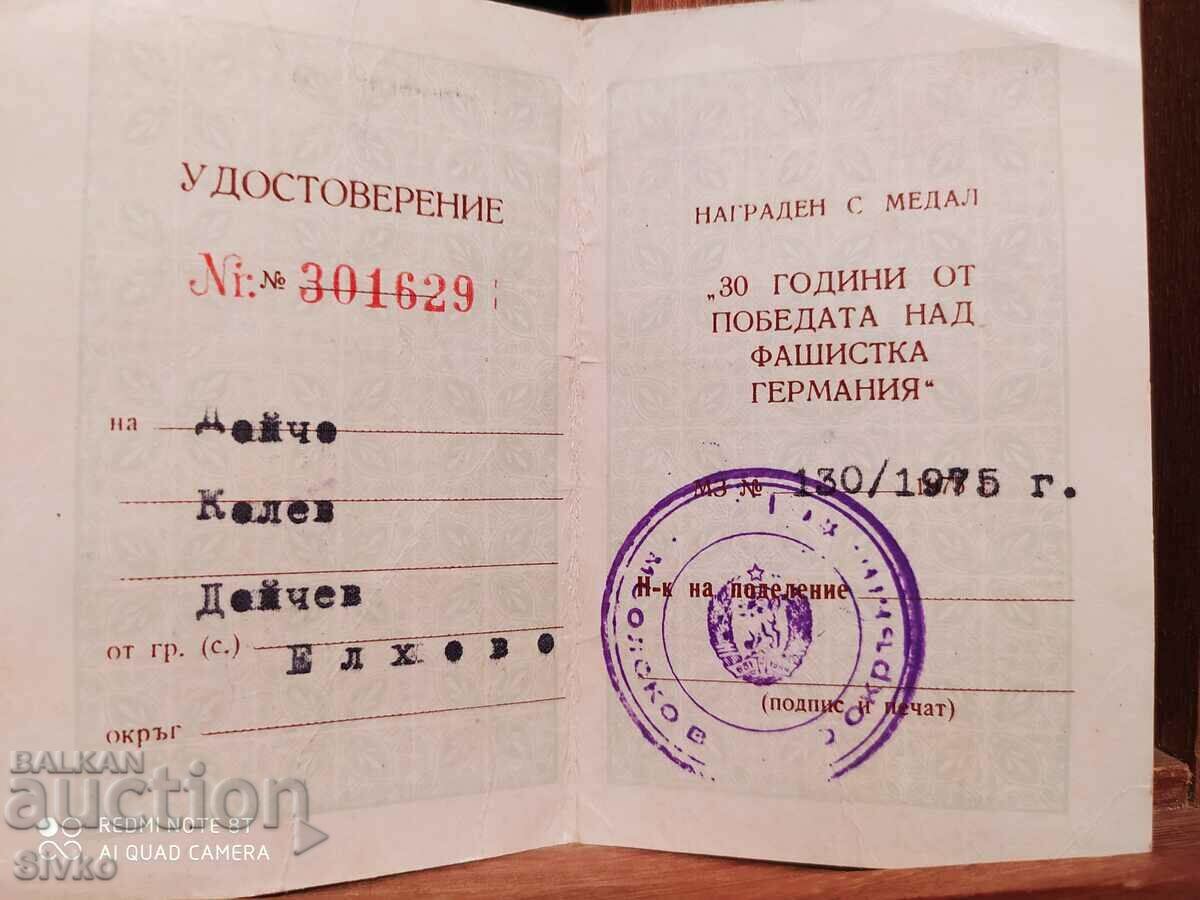 УДОСТОВЕРЕНИЕ
Nr: № 301629
на Дейчо
Колев
Дейчев
от гр. (с.) Елхово
окръг
НАГРАДЕН С МЕДАЛ
„30 ГОДИНИ ОТ
ПОБЕДАТА НАД
ФАШИСТКА
ГЕРМАНИЯ“
МЗ № 130/1975 г.
Н-к на поделение
(подпис и печат)
BALKAN
auction
REDMI NOTE 8T
AI QUAD CAMERA
Sivko